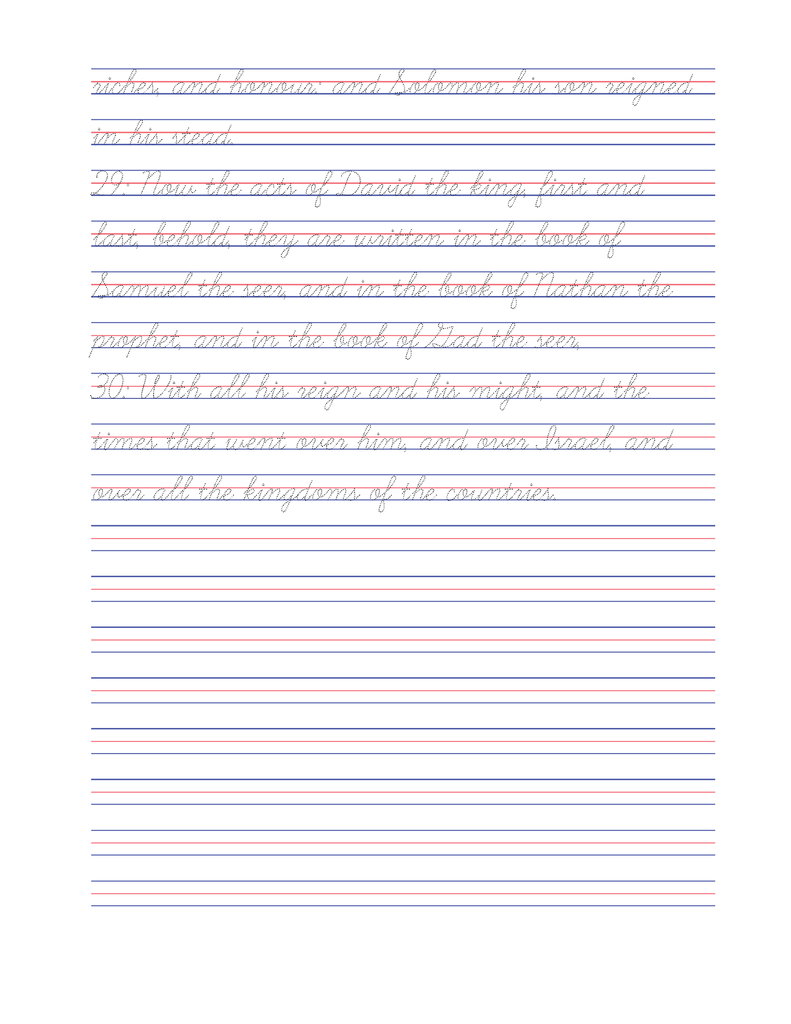 riches, and honour: and Solomon his son reigned
in his stead.
29: Now the acts of David the king, first and
last, behold, they are written in the book of
Samuel the seer, and in the book of Nathan the
prophet, and in the book of Gad the seer,
30: With all his reign and his might, and the
times that went over him, and over Israel, and
over all the kingdoms of the countries.